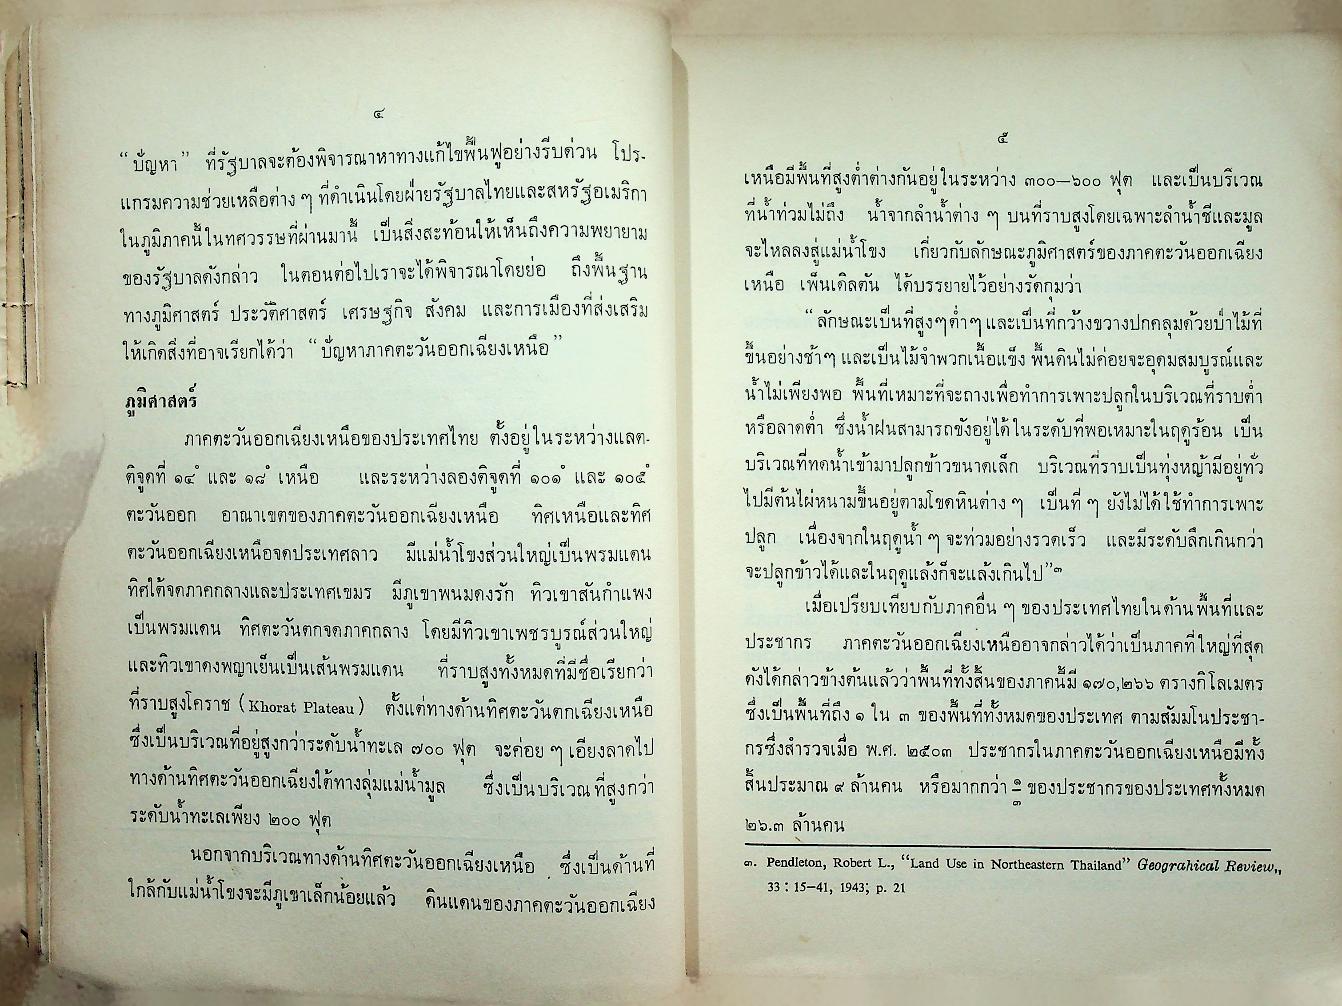 ๔
“ปัญหา” ที่รัฐบาลจะต้องพิจารณาหาทางแก้ไขฟื้นฟูอย่างรีบด่วน โปร-
แกรมความช่วยเหลือต่าง ๆ ที่ดำเนินโดยฝ่ายรัฐบาลไทยและสหรัฐอเมริกา
ในภูมิภาคนี้ในทศวรรษที่ผ่านมานี้ เป็นสิ่งสะท้อนให้เห็นถึงความพยายาม
ของรัฐบาลดังกล่าว ในตอนต่อไปเราจะได้พิจารณาโดยย่อ ถึงพื้นฐาน
ทางภูมิศาสตร์ ประวัติศาสตร์ เศรษฐกิจ สังคม และการเมืองที่ส่งเสริม
ให้เกิดสิ่งที่อาจเรียกได้ว่า “ปัญหาภาคตะวันออกเฉียงเหนือ”
ภูมิศาสตร์
ภาคตะวันออกเฉียงเหนือของประเทศไทย ตั้งอยู่ในระหว่างแลต-
ติจูดที่ ๑๔° และ ๑๘° เหนือ และระหว่างลองติจูดที่ ๑๐๑° และ ๑๐๕°
ตะวันออก อาณาเขตของภาคตะวันออกเฉียงเหนือ ทิศเหนือและทิศ
ตะวันออกเฉียงเหนือจดประเทศลาว มีแม่น้ำโขงส่วนใหญ่เป็นพรมแดน
ทิศใต้จดภาคกลางและประเทศเขมร มีภูเขาพนมดงรัก ทิวเขาสันกำแพง
เป็นพรมแดน ทิศตะวันตกจดภาคกลาง โดยมีทิวเขาเพชรบูรณ์ส่วนใหญ่
และทิวเขาดงพญาเย็นเป็นเส้นพรมแดน ที่ราบสูงทั้งหมดที่มีชื่อเรียกว่า
ที่ราบสูงโคราช (Khorat Plateau) ตั้งแต่ทางด้านทิศตะวันตกเฉียงเหนือ
ซึ่งเป็นบริเวณที่อยู่สูงกว่าระดับน้ำทะเล ๗๐๐ ฟุต จะค่อย ๆ เอียงลาดไป
ทางด้านทิศตะวันออกเฉียงใต้ทางลุ่มแม่น้ำมูล ซึ่งเป็นบริเวณที่สูงกว่า
ระดับน้ำทะเลเพียง ๒๐๐ ฟุต
นอกจากบริเวณทางด้านทิศตะวันออกเฉียงเหนือ ซึ่งเป็นด้านที่
ใกล้กับแม่น้ำโขงจะมีภูเขาเล็กน้อยแล้ว ดินแดนของภาคตะวันออกเฉียง
๕
เหนือมีพื้นที่สูงต่ำต่างกันอยู่ในระหว่าง ๓๐๐—๖๐๐ ฟุต และเป็นบริเวณ
ที่น้ำท่วมไม่ถึง น้ำจากลำน้ำต่าง ๆ บนที่ราบสูงโดยเฉพาะลำน้ำชีและมูล
จะไหลลงสู่แม่น้ำโขง เกี่ยวกับลักษณะภูมิศาสตร์ของภาคตะวันออกเฉียง
เหนือ เพ็นเดิลตัน ได้บรรยายไว้อย่างรัดกุมว่า
“ลักษณะเป็นที่สูงๆต่ำๆ และเป็นที่กว้างขวางปกคลุมด้วยป่าไม้ที่
ขึ้นอย่างช้าๆ และเป็นไม้จำพวกเนื้อแข็ง พื้นดินไม่ค่อยจะอุดมสมบูรณ์และ
น้ำไม่เพียงพอ พื้นที่เหมาะที่จะถางเพื่อทำการเพาะปลูกในบริเวณที่ราบต่ำ
หรือลาดต่ำ ซึ่งน้ำฝนสามารถขังอยู่ได้ในระดับที่พอเหมาะในฤดูร้อน เป็น
บริเวณที่ทดน้ำเข้ามาปลูกข้าวขนาดเล็ก บริเวณที่ราบเป็นทุ่งหญ้ามีอยู่ทั่ว
ไปมีต้นไผ่หนามขึ้นอยู่ตามโขดหินต่าง ๆ เป็นที่ ๆ ยังไม่ได้ใช้ทำการเพาะ
ปลูก เนื่องจากในฤดูน้ำ ๆ จะท่วมอย่างรวดเร็ว และมีระดับลึกเกินกว่า
จะปลูกข้าวได้และในฤดูแล้งก็จะแล้งเกินไป”๓
เมื่อเปรียบเทียบกับภาคอื่น ๆ ของประเทศไทยในด้านพื้นที่และ
ประชากร ภาคตะวันออกเฉียงเหนืออาจกล่าวได้ว่าเป็นภาคที่ใหญ่ที่สุด
ดังได้กล่าวข้างต้นแล้วว่าพื้นที่ทั้งสิ้นของภาคนี้มี ๑๗๐,๒๖๖ ตรางกิโลเมตร
ซึ่งเป็นพื้นที่ถึง ๑ ใน ๓ ของพื้นที่ทั้งหมดของประเทศ ตามสัมมโนประชา-
กรซึ่งสำรวจเมื่อ พ.ศ. ๒๕๐๓ ประชากรในภาคตะวันออกเฉียงเหนือมีทั้ง
สิ้นประมาณ ๙ ล้านคน หรือมากกว่า ๑/๓ ของประชากรของประเทศทั้งหมด
๒๖.๓ ล้านคน
๓. Pendleton, Robert L., “Land Use in Northeastern Thailand” Geograhical Review,,
33 : 15–41, 1943; p. 21